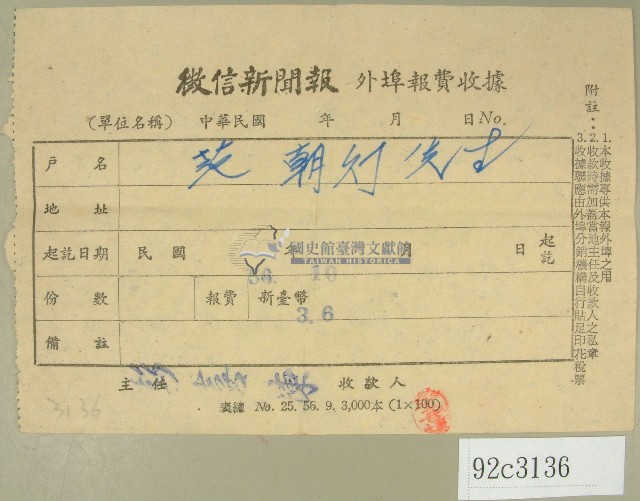 微信新聞報 外埠報費收據
(單位名稱) 中華民國 年 月 日 No.
戶名 朝 先生
地址
起訖日期 民國 年 月 日 起訖
國史館臺灣文獻館
TAIWAN HISTORICA
56. 10
份數 報費 新臺幣
3.6
備註
主任 收款人
表總 No. 25. 56. 9. 3,000本 (1×100)
附註：
1.本收據專供本報外埠之用
2.收款時需加蓋當地主任及收款人之私章
3.收據聯應由外埠分銷機構自行貼足印花稅票
3136
92c3136